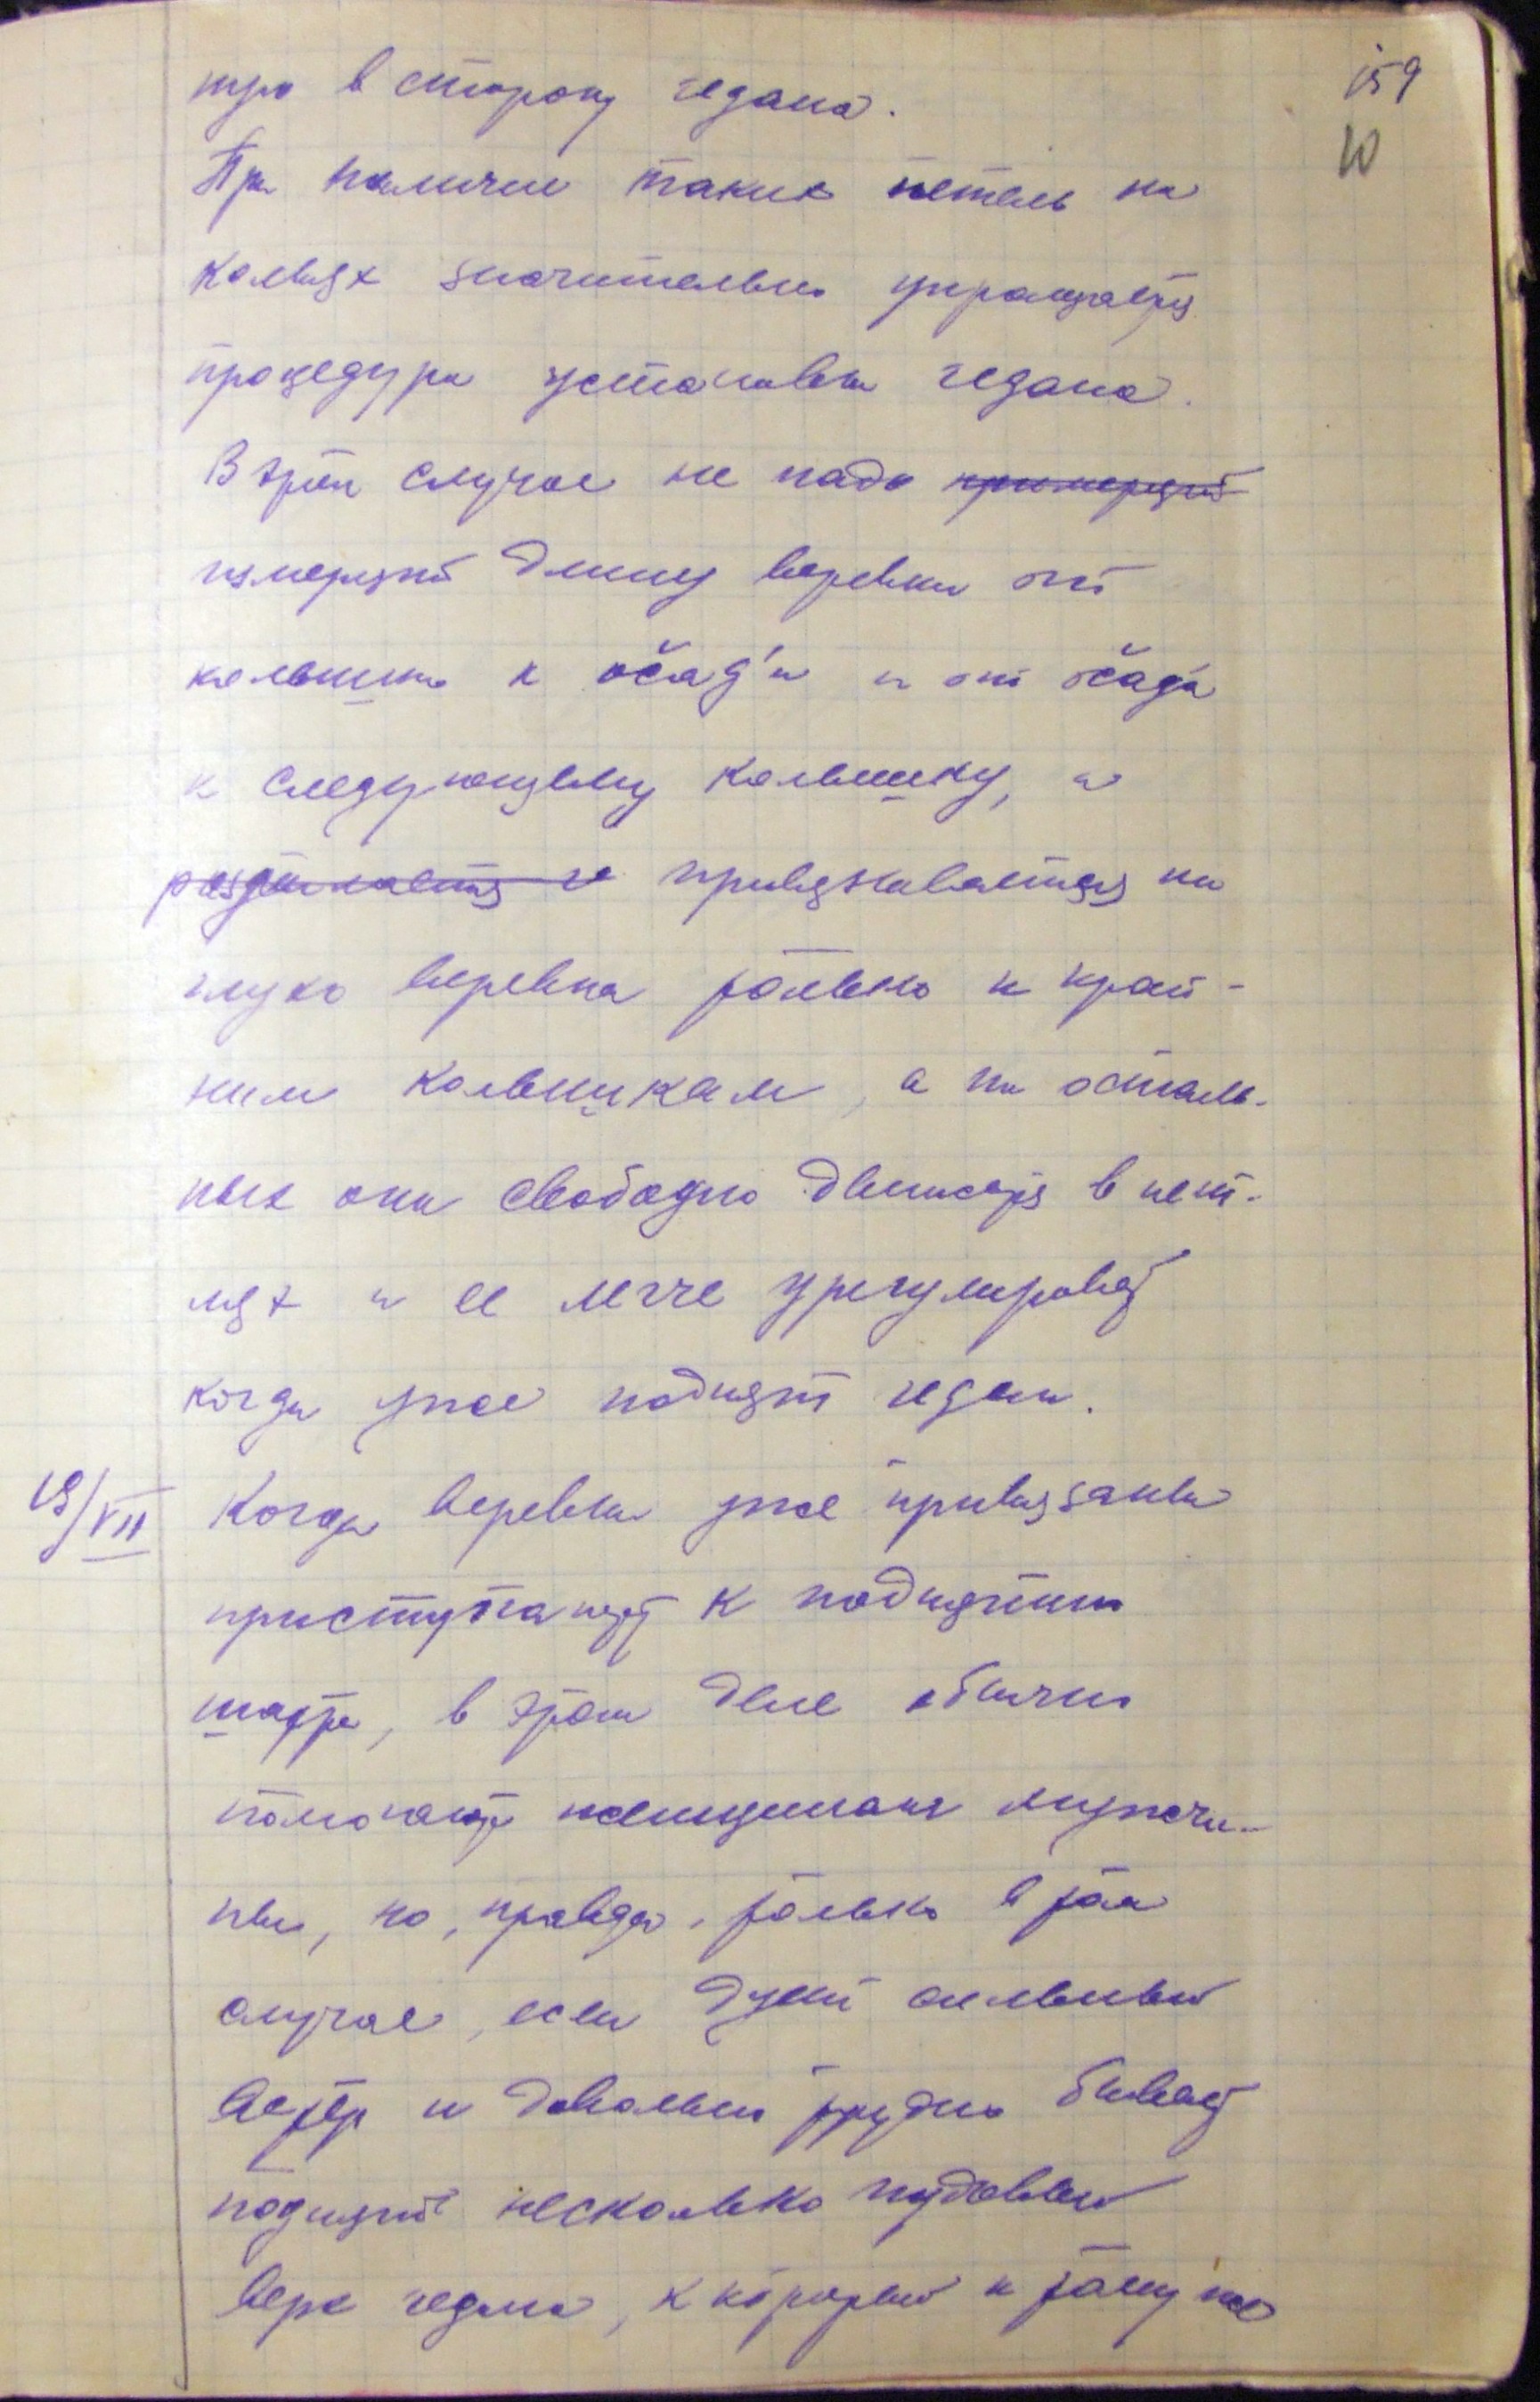 159
20
тра в сторону чедана.
При наличие таких петель на
кольях значительно упрощается
процедура установки чедана.
В этом случае не надо примерять
измерять длину веревки от
колышка к očag'и и от očaga
к следующему колышку, и
привязывается на
глухо веревка только к край-
ним колышкам, а на осталь-
ных они свободно движется в пет-
лях и ее легче урегулировать
когда уже поднят чедан.
19/VII Когда веревки уже привязаны
приступают к поднятию
шатра, в этом деле обычно
помогают женщинам мужчи-
ны, но, правда, только в том
случае, если дует сильный
ветер и довольно трудно бывает
поднять несколько пудовый
верх чедана, к который к тому же